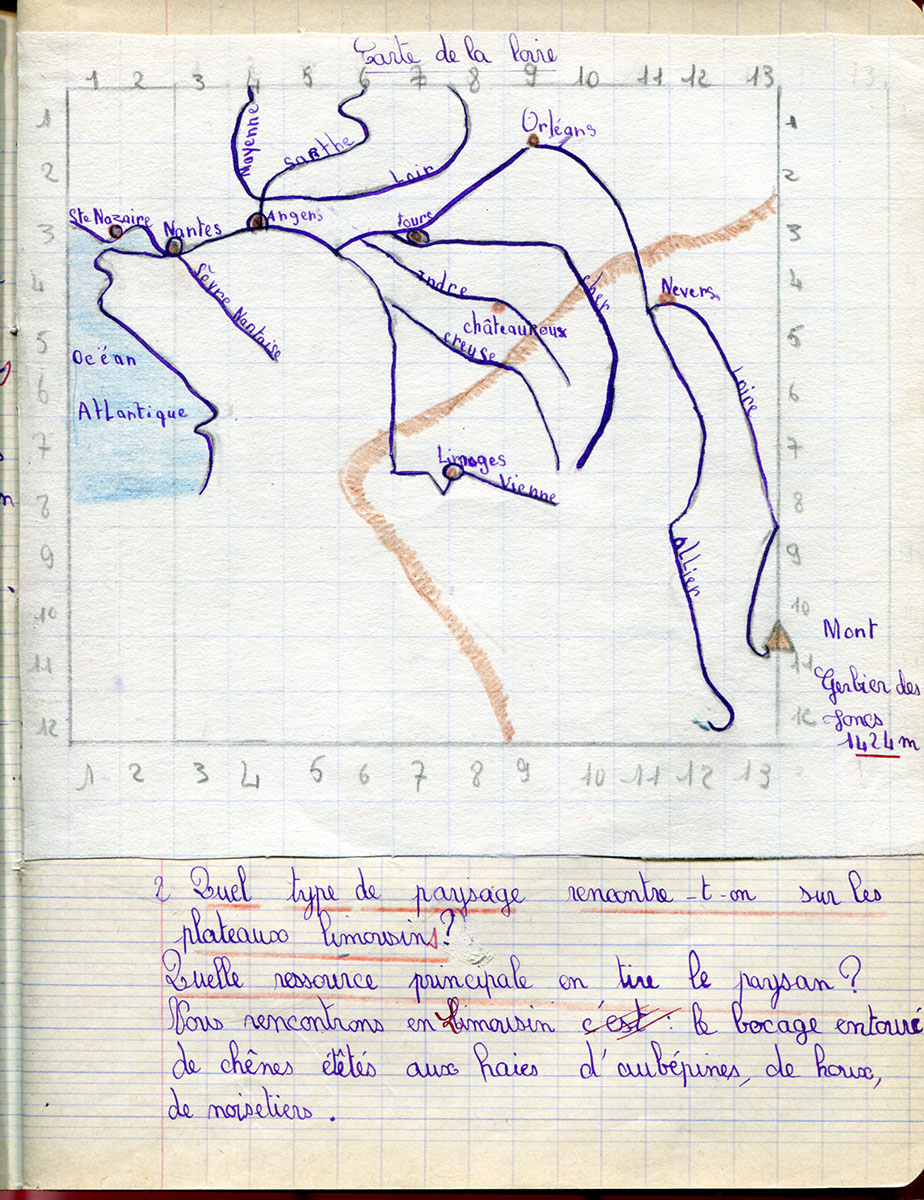 Carte de la Loire
1 2 3 4 5 6 7 8 9 10 11 12 13
1 1
2 2
3 3
4 4
5 5
6 6
7 7
8 8
9 9
10 10
11 11
12 12
1 2 3 4 5 6 7 8 9 10 11 12 13
Mayenne
Sarthe
Loir
Orléans
Ste Nazaire
Nantes
Angers
Tours
Sèvre Nantaise
Indre
Cher
Nevers
châteauroux
creuse
Océan
Atlantique
Loire
Limoges
Vienne
Allier
Mont
Gerbier des
Joncs
1424m
2 Quel type de paysage rencontre-t-on sur les
plateaux limousins?
Quelle ressource principale en tire le paysan?
Nous rencontrons en Limousin c'est : le bocage entouré
de chênes étêtés aux haies d'aubépines, de houx,
de noisetiers.